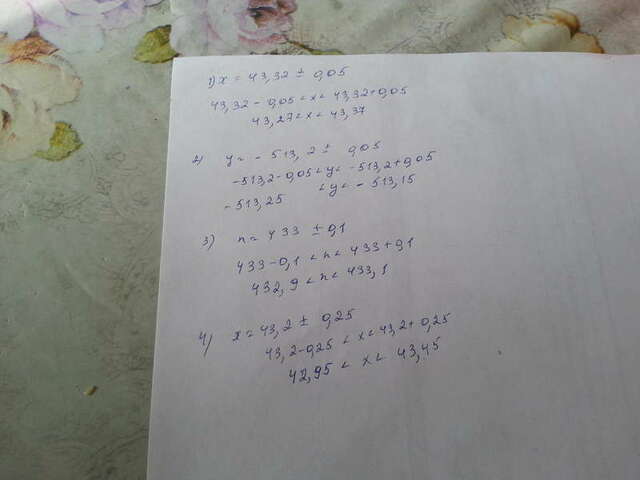 1) x = 43,32 ± 0,05
43,32 - 0,05 < x < 43,32 + 0,05
43,27 < x < 43,37
2) y = - 513,2 ± 0,05
-513,2 - 0,05 < y < -513,2 + 0,05
-513,25 < y < - 513,15
3) n = 433 ± 0,1
433 - 0,1 < n < 433 + 0,1
432,9 < n < 433,1
4) x = 43,2 ± 0,25
43,2 - 0,25 < x < 43,2 + 0,25
42,95 < x < 43,45